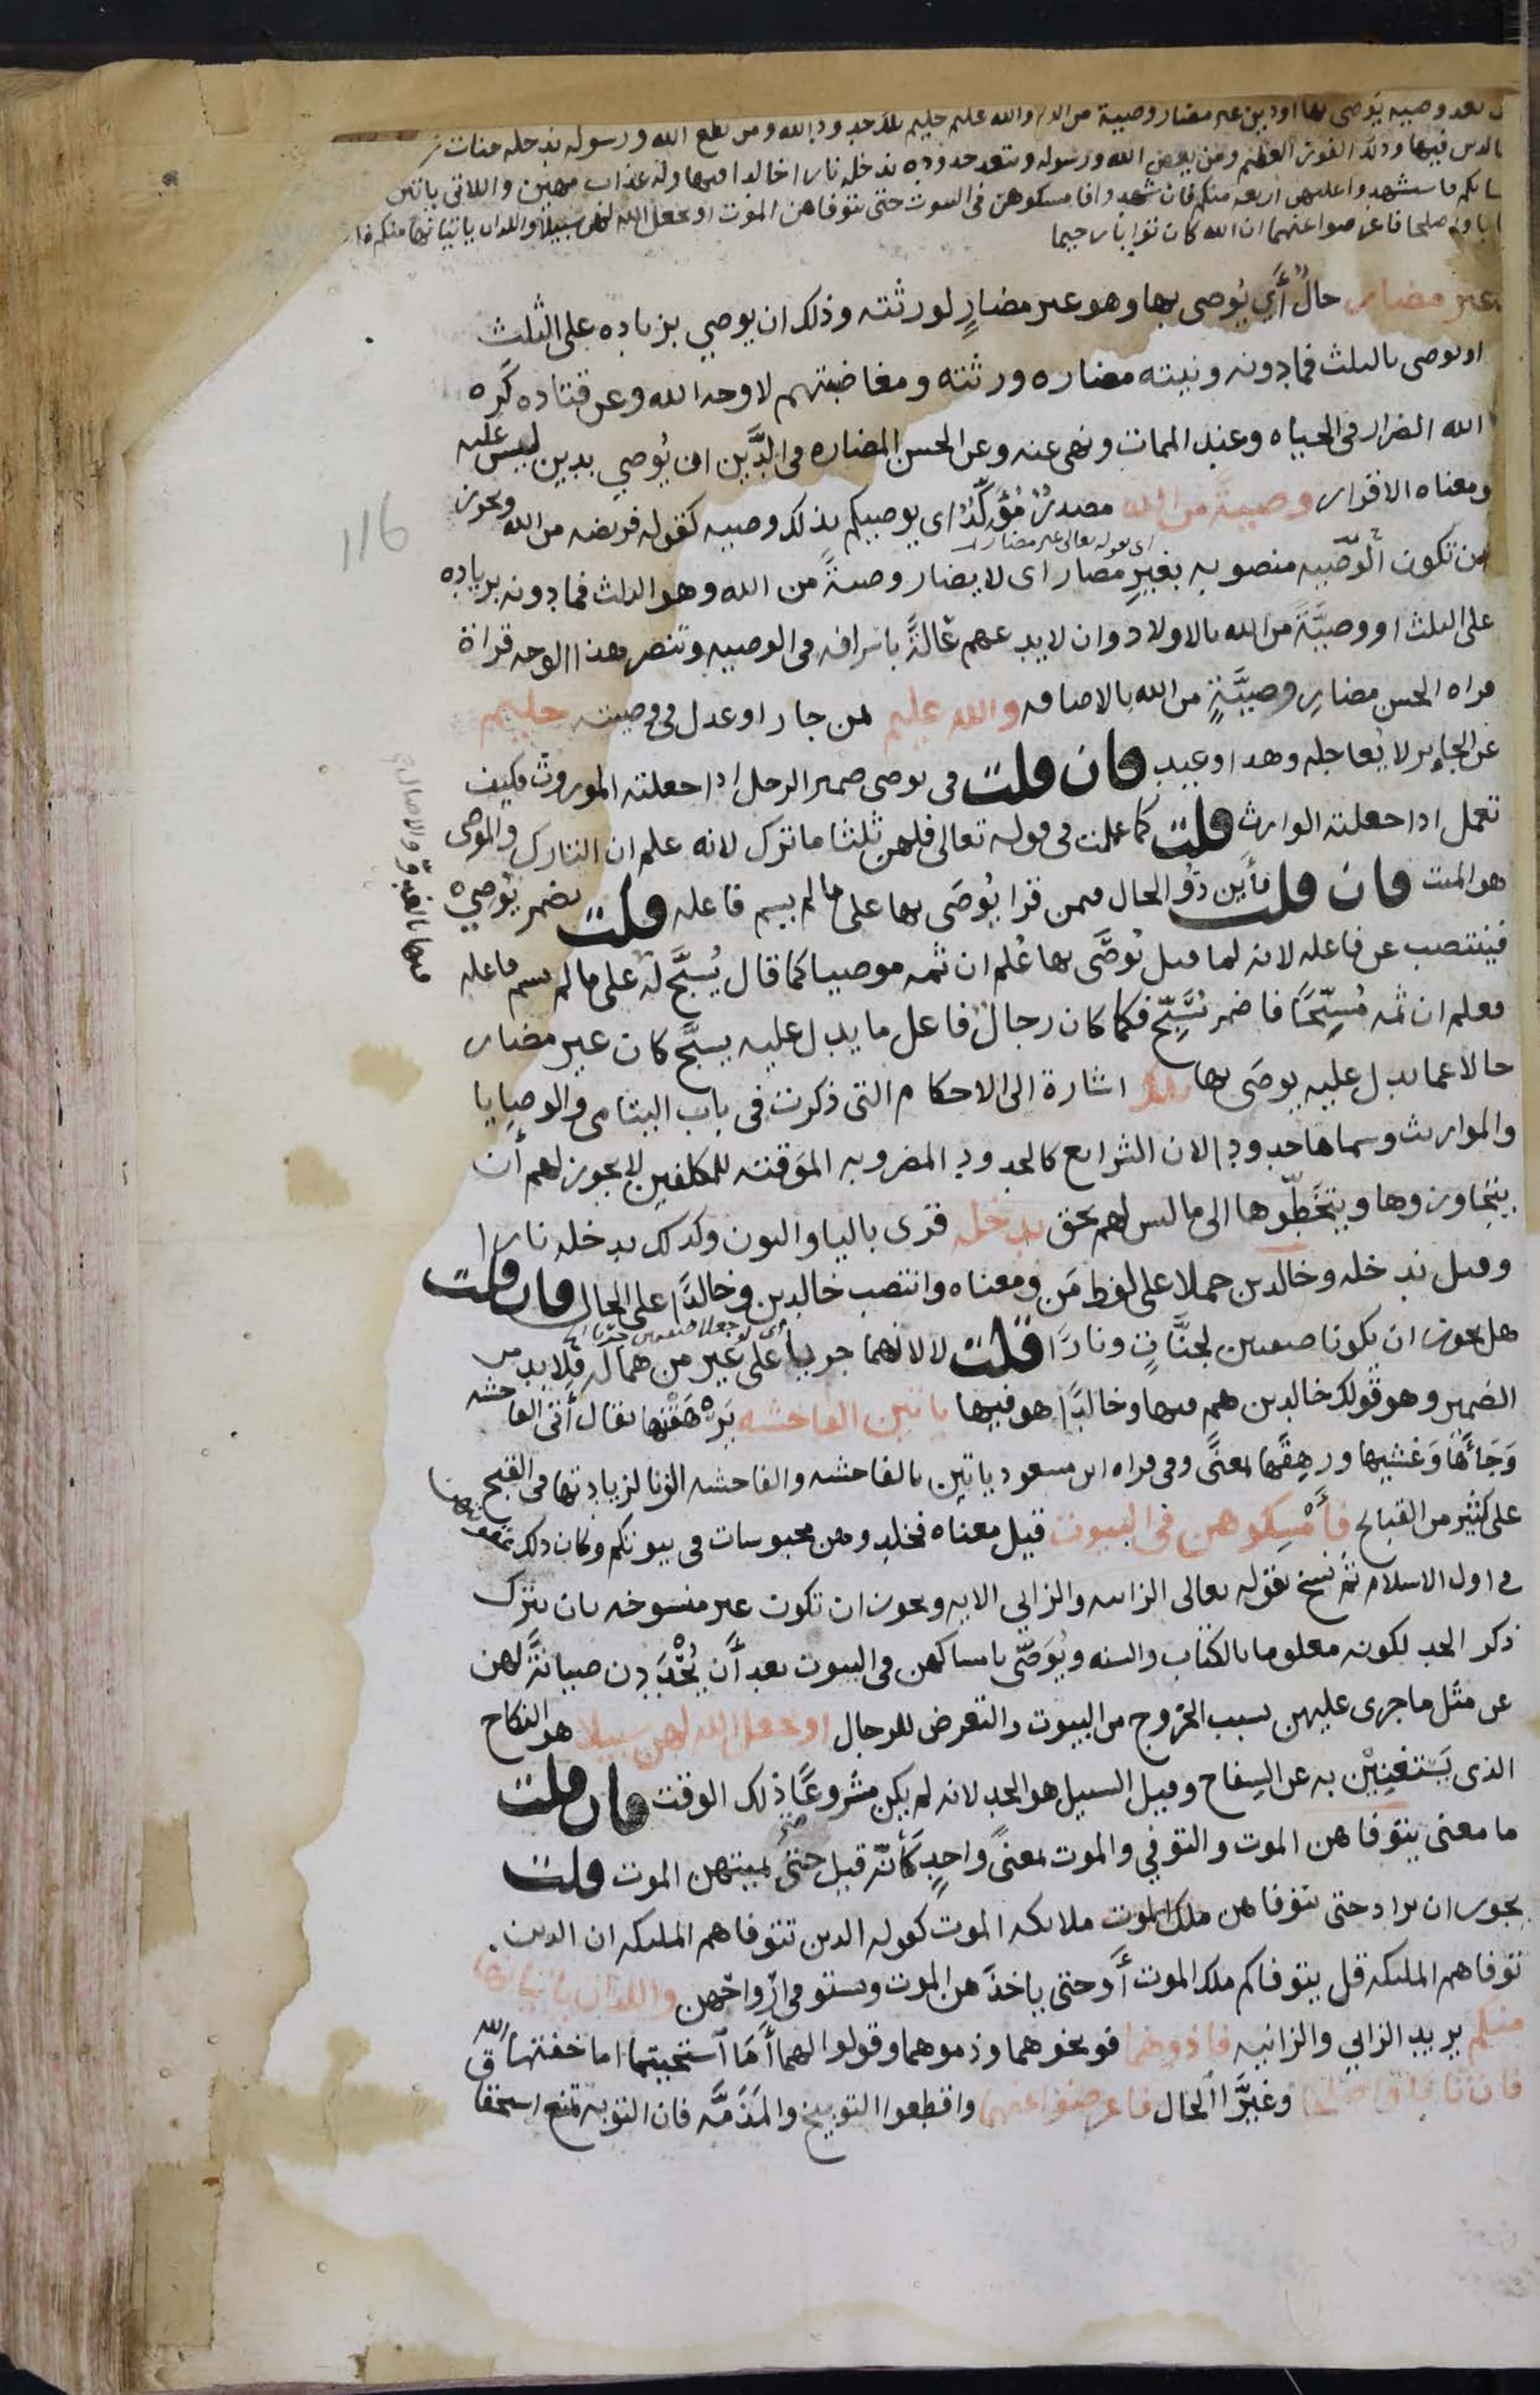 بعد وصيه يوصى بها اودين غير مضار وصية من الله والله عليم حليم تلك حدود الله ومن يطع الله ورسوله ندخله جنات
خالدين فيها وذلك الفوز العظيم ومن يعص الله ورسوله ويتعد حدوده ندخله نارا خالدا فيها وله عذاب مهين واللاتي ياتين
فاستشهدوا عليهن اربعه منكم فان شهدوا فامسكوهن في البيوت حتى يتوفاهن الموت او يجعل الله لهن سبيلا واللذان ياتيانها منكم
واصلحا فاعرضوا عنهما ان الله كان توابا رحيما
غير مضار حالٌ أي يُوصى بها وهو غير مضارٍ لورثته وذلك ان يوصي بزياده على الثلث
او يوصى بالثلث فمادونه ونيته مضاره ورثته ومغاضبتهم لا وجه الله وعن قتاده كَرِه
الله الضرار في الحياه وعند الممات ونهى عنه وعن الحسن المضاره في الدَّين ان يُوصي بدين ليس عليه
ومعناه الاقرار وصيةً من الله مصدرٌ مُؤكَّدٌ اى يوصيكم بذلك وصيه كقوله فريضه من الله ويجوز
اى بقوله تعالى غير مضار
ان تكون الوصّيه منصوبه بغيرِ مضار اى لا يضار وصيةً من الله وهو الثلث فمادونه بزياده
على الثلث او وصيَّةً من الله بالاولاد وان لا يدعهم عالةً باسرافه في الوصيه وتنصر هذا الوجه قراة
قراه الحسن مضارِ وصيَّةٍ من الله بالاضافه والله عليم لمن جار او عدل في وصيته حليم
عن الجاير لا يُعاجله وهذا وعيد فان قلت في يوصى ضمير الرجل اذا جعلته الموروث فكيف
تعمل اذا جعلته الوارث قلت كما عملت في قوله تعالى فلهن ثلثا ما ترك لانه علم ان التارك والموصى
هو الميت فان قلت فأين ذُو الحال فيمن قرا يُوصَى بها على ما لم يسم فاعله قلت يضمر يُوصِي
فينتصب عن فاعله لانه لما قيل يُوصَّى بها عُلم ان ثمه موصيا كما قال يُسبَّح له على ما لم يسم فاعله
فعلم ان ثمه مُسبِّحًا فاضمر يُسَبِّح فكما كان رجالٌ فاعل ما يدل عليه يسبَّح كان غير مضار
حالا عما يدل عليه يوصَى بها تلك اشارة الى الاحكام التي ذكرت في باب اليتامى والوصايا
والمواريث وسماها حدودا لان الشرايع كالحدود المضروبه المَوقته للمكلفين لا يجوز لهم أن
يتجاوزوها ويتخَطَّوها الى ما ليس لهم بحق يدخله قرى باليا والنون وكذلك يدخله نارا
وقيل يدخله وخالدين حملا على لفظ مَن ومعناه وانتصب خالدين وخالدًا على الحال فان قلت
هل يجوز ان يكونا صفتين لجنَّاتٍ ونارًا قلت لا لانهما جريا على غير من هما له فلا بد من
الضمير وهو قولك خالدين هم فيها وخالدًا هو فيها ياتين الفاحشه يَرهَقْنها يقال أتى الفاحشه
وَجَأَهَا وَغشيها ورهِقَها بمعنًى وفي قراه ابن مسعود ياتين بالفاحشه والفاحشه الزنا لزيادتها في القبح
على كثير من القبايح فأمسِكوهن في البيوت قيل معناه فخلدوهن محبوسات في بيوتكم وكان ذلك عقوبتهن
في اول الاسلام ثم نسخ بقوله تعالى الزانيه والزاني الايه ويجوز ان تكون غير منسوخه بان يترك
ذكر الحد لكونه معلوما بالكتاب والسنه ويُوَصّى بامساكهن في البيوت بعد أَن يُحْدَدن صيانةً لهن
عن مثل ما جرى عليهن بسبب الخُروج من البيوت والتعرض للرجال او يجعل الله لهن سبيلا هو النكاح
الذى يَستغنِيْن به عن السِفاح وقيل السبيل هو الحد لانه لم يكن مشروعًا ذلك الوقت فان قلت
ما معنى يتوفاهن الموت والتوفي والموت بمعنًى واحدٍ كأنّه قيل حتى يميتهن الموت قلت
يجوز ان يراد حتى يتوفاهن ملك الموت ملائكه الموت كقوله الذين تتوفاهم الملئكه ان الذين
توفاهم الملئكه قل يتوفاكم ملك الموت أو حتى ياخذهن الموت ويستوفي ارْواحَهن واللذان ياتيانها
منكم يريد الزاني والزانيه فاذوهما فوبخوهما وذموهما وقولوا لهما أَمَا استحييتما اما خفتما الله
فان تابا واصلحا وغيَّرا الحال فاعرضوا عنهما واقطعوا التوبيخ والمَذمَّه فان التوبه تمنع استحقاق
116